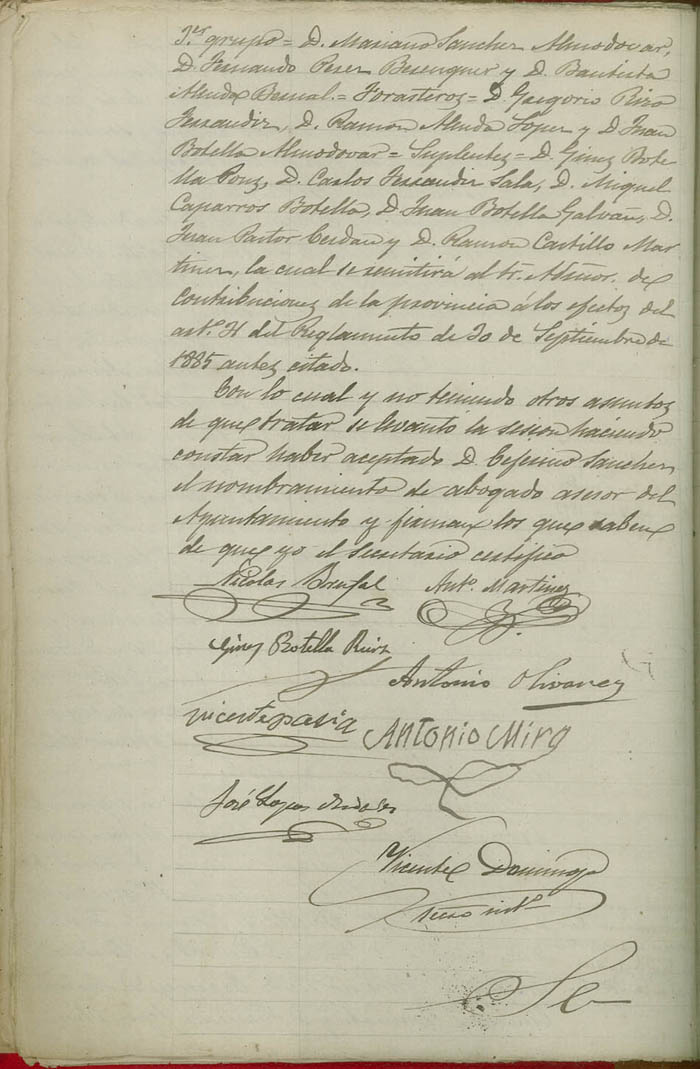 3.er grupo = D. Mariano Sanchez Almodovar,
D. Fernando Perez Berenguer y D. Bautista
Almela Bernal. = Forasteros = D. Gregorio Rizo
Ferrandiz, D. Ramon Almela Lopez y D. Juan
Botella Almodovar = Suplentes = D. Ginez Bote
lla Pouz, D. Carlos Ferrandiz Sala, D. Miguel
Caparros Botella, D. Juan Botella Galvañ, D.
Juan Pastor Cerdan y D. Ramon Castillo Mar
tinez, la cual se remitirá al Sr. Admor. de
Contribuciones de la provincia á los efectos del
art.º 31 del Reglamento de 30 de Septiembre de
1885 antes citado.
Con lo cual y no teniendo otros asuntos
de que tratar se levantó la sesion haciendo
constar haber aceptado D. Ceferino Sanchez
el nombramiento de abogado asesor del
Ayuntamiento y firman los que saben
de que yo el Secretario certifico
Nicolas Ant.º Martinez
Ginez Botella Ruiz
Antonio Olivarez
Vicente
Antonio Miro
José Lopez
Vicente Domingo
Srio int.º